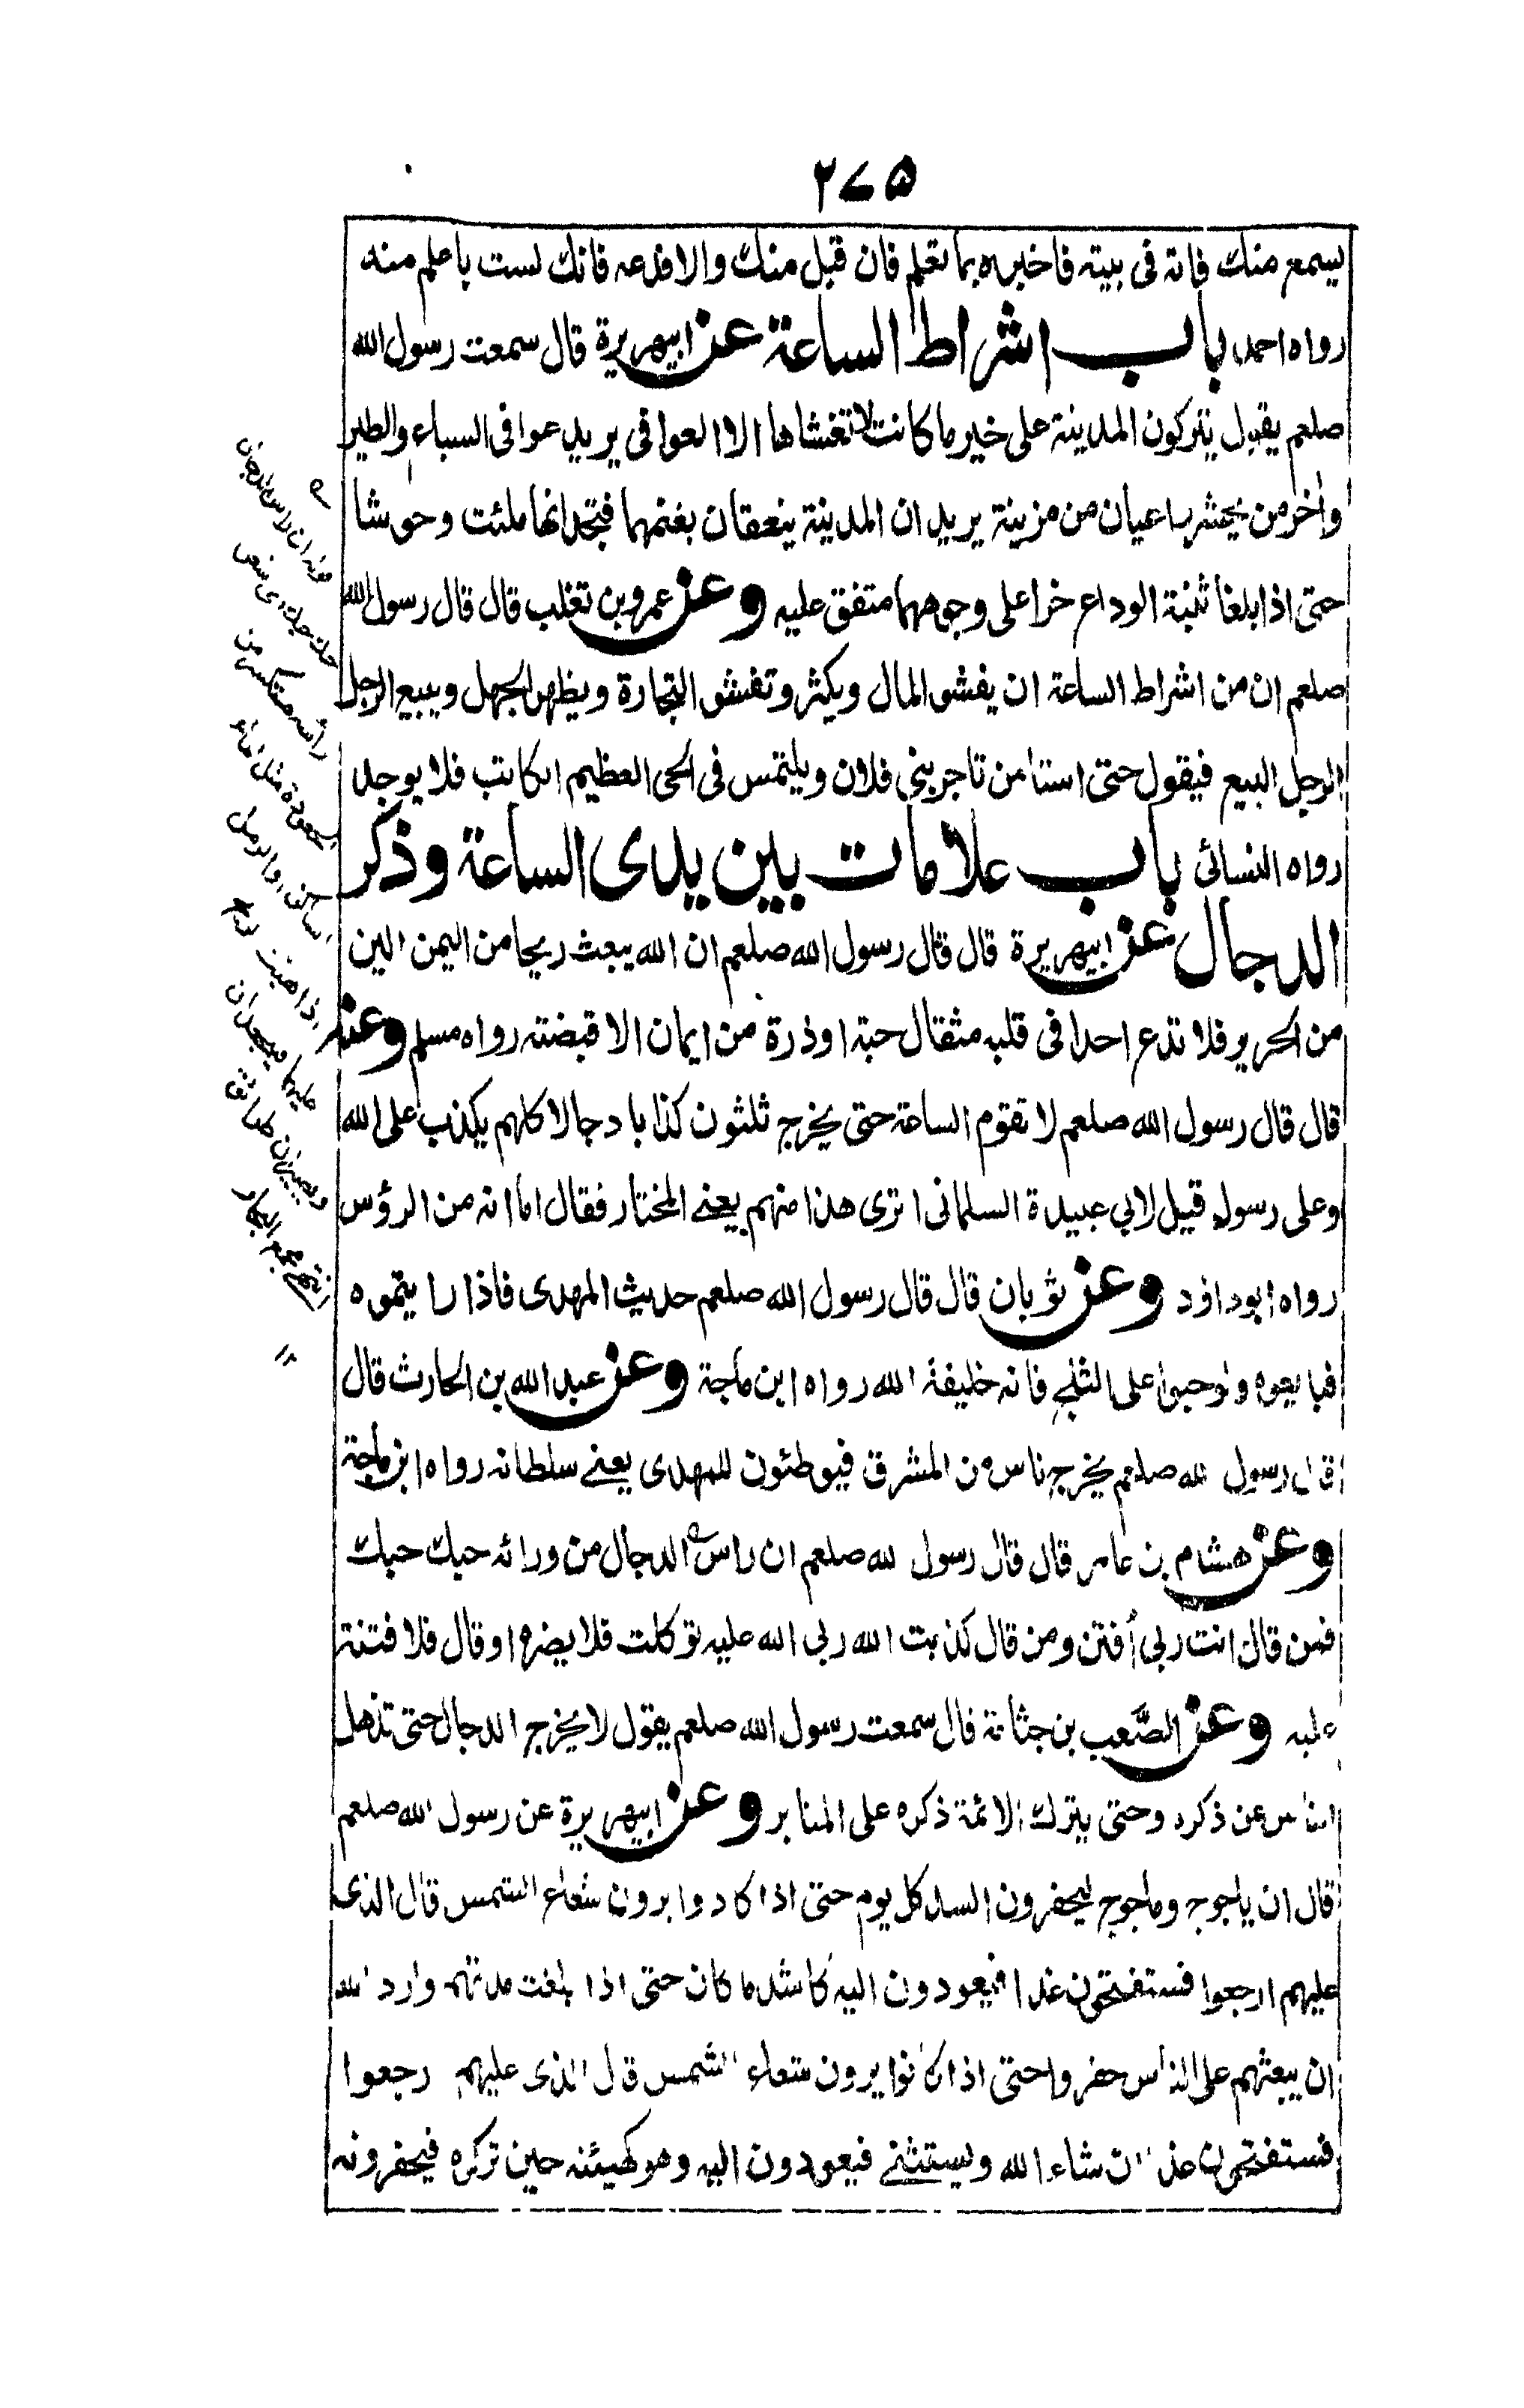 ۲۷۵
يسمع منك فانه فى بيته فاخبره بما تعلم فان قبل منك والا فدعه فانك لست باعلم منه
رواه احمد باب اشراط الساعة عن ابيهريرة قال سمعت رسول الله
صلعم يقول يتركون المدينة على خير ما كانت لا تغشاها الا العوافى يريد عوافى السباء والطير
واخر من يحشر راعيان من مزينة يريدان المدينة ينعقان بغنمهما فيجدانها ملئت وحوشا
حتى اذا بلغا ثنية الوداع خرا على وجوههما متفق عليه وعن عمرو بن تغلب قال قال رسول الله
صلعم ان من اشراط الساعة ان يفشو المال ويكثر وتفشو التجارة ويظهر الجهل ويبيع الرجل
الرجل البيع فيقول حتى استامن تاجر بنى فلان ويلتمس فى الحى العظيم الكاتب فلا يوجد
رواه النسائى باب علامات بين يدى الساعة وذكر
الدجال عن ابيهريرة قال قال رسول الله صلعم ان الله يبعث ريحا من اليمن الين
من الحرير فلا تدع احدا فى قلبه مثقال حبة او ذرة من ايمان الا قبضته رواه مسلم وعنه
قال قال رسول الله صلعم لا تقوم الساعة حتى يخرج ثلثون كذابا دجالا كلهم يكذب على الله
وعلى رسوله قيل لابي عبيدة السلمانى اترى هذا منهم يعنے المختار فقال اما انه من الرؤس
رواه ابوداؤد وعن ثوبان قال قال رسول الله صلعم حديث المهدى فاذا رايتموه
فبايعوه ولو حبوا على الثلج فانه خليفة الله رواه ابن ماجة وعن عبد الله بن الحارث قال
قال رسول لله صلعم يخرج ناس من المشرق فيوطئون للمهدى يعنے سلطانه رواه ابن ماجة
وعن هشام بن عامر قال قال رسول لله صلعم ان راس الدجال من ورائه حبك حبك
فمن قال انت ربى أفتتن ومن قال كذبت الله ربى الله عليه توكلت فلا يضره او قال فلا فتنة
عليه وعن الصَّعب بن جثامة قال سمعت رسول الله صلعم يقول لا يخرج الدجال حتى تذهل
الناس عن ذكره وحتى يترك الائمة ذكره على المنابر وعن ابيهريرة عن رسول الله صلعم
قال ان ياجوج وماجوج ليحفرون السد كل يوم حتى اذا كادوا يرون شعاع الشمس قال الذى
عليهم ارجعوا فستفتحون غدا فيعودون اليه كاشد ما كان حتى اذا بلغت مدتهم واراد الله
ان يبعثهم على الناس حفروا حتى اذا كانوا يرون شعاع الشمس قال الذى عليهم رجعوا
فستفتحون غدا ان شاء الله ويستثنے فيعودون اليه وهو كهيئته حين تركوه فيحفرونه
رأسه متكسر من
الجعودة مثل الماء
الساكن او الرمل
اذا هبت
عليهما فيتجعدان
ويصيران طرائق
انتهى مجمع البحار
۱۲